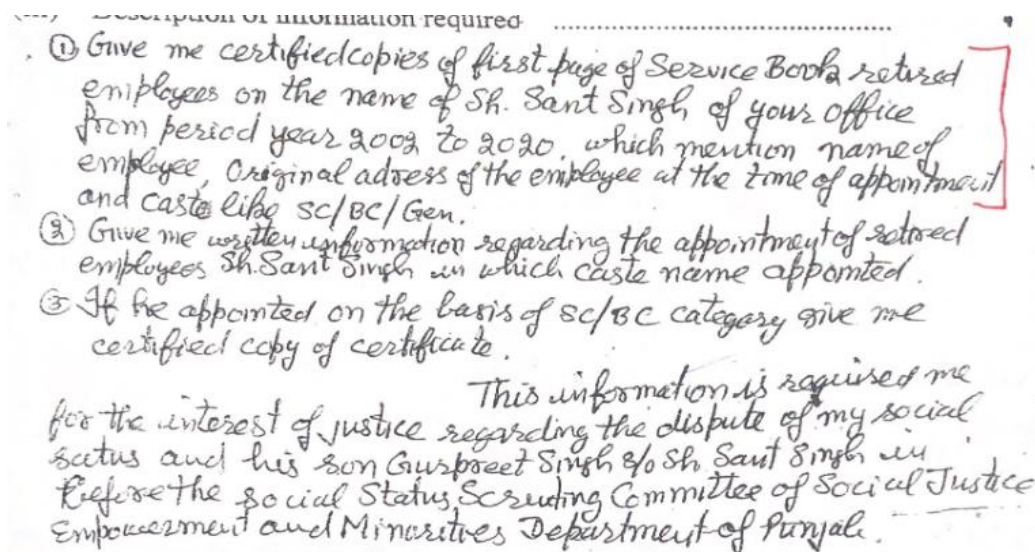 Description of information required ........................
① Give me certified copies of first page of Service Book retired
employees on the name of Sh. Sant Singh of your office
from period year 2002 to 2020, which mention name of
employee, Original adress of the employee at the time of appointment
and caste like SC/BC/Gen.
② Give me written information regarding the appointment of retired
employees Sh. Sant Singh in which caste name appointed.
③ If he appointed on the basis of SC/BC category give me
certified copy of certificate.
This information is required me
for the interest of justice regarding the dispute of my social
satus and his son Gurpreet Singh s/o Sh. Sant Singh in
Before the Social Status Scruting Committee of Social Justice
Empowerment and Minorities Department of Punjab.